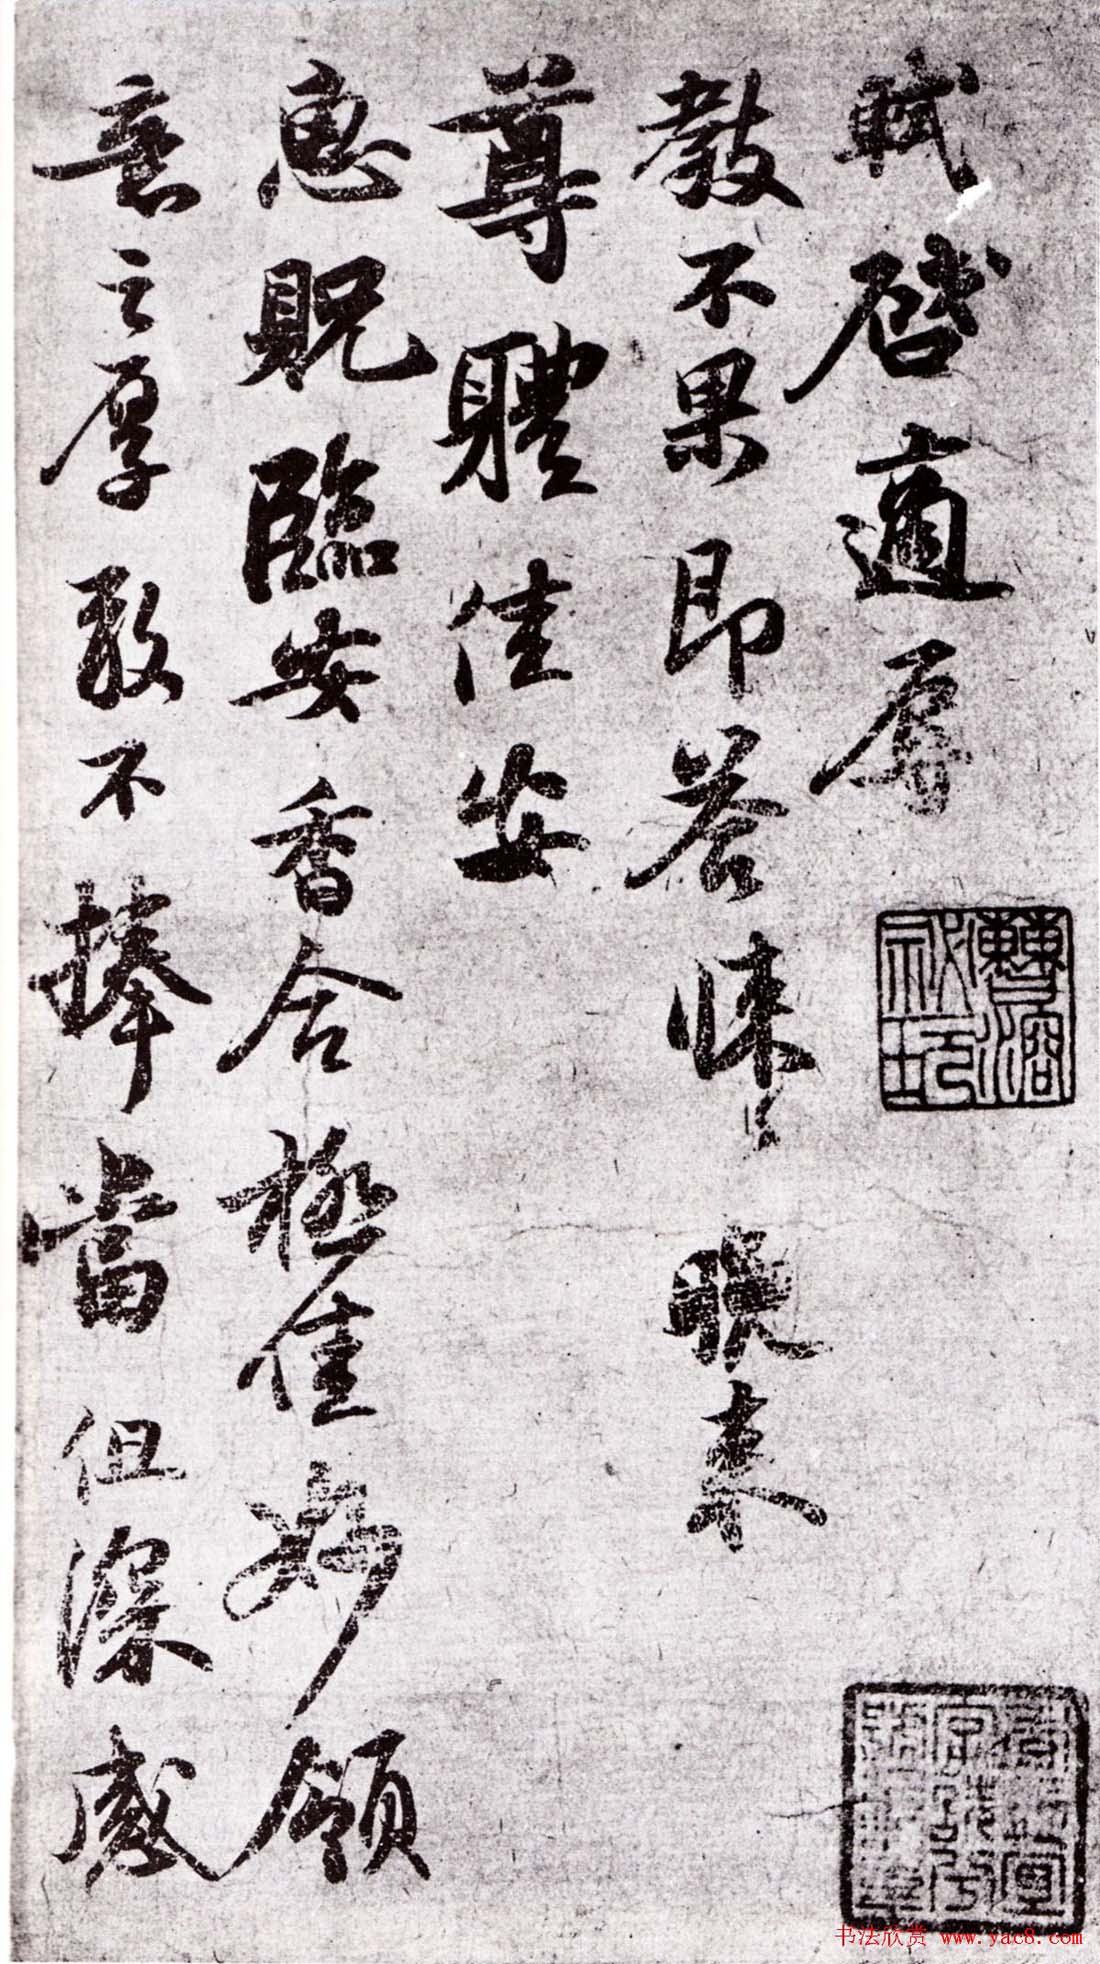 軾啓適辱
教不果即答悚悚眠來
尊體佳安
惠貺臨安香合極佳妙領
意之厚敢不捧當但深感
书法欣赏 www.yac8.com